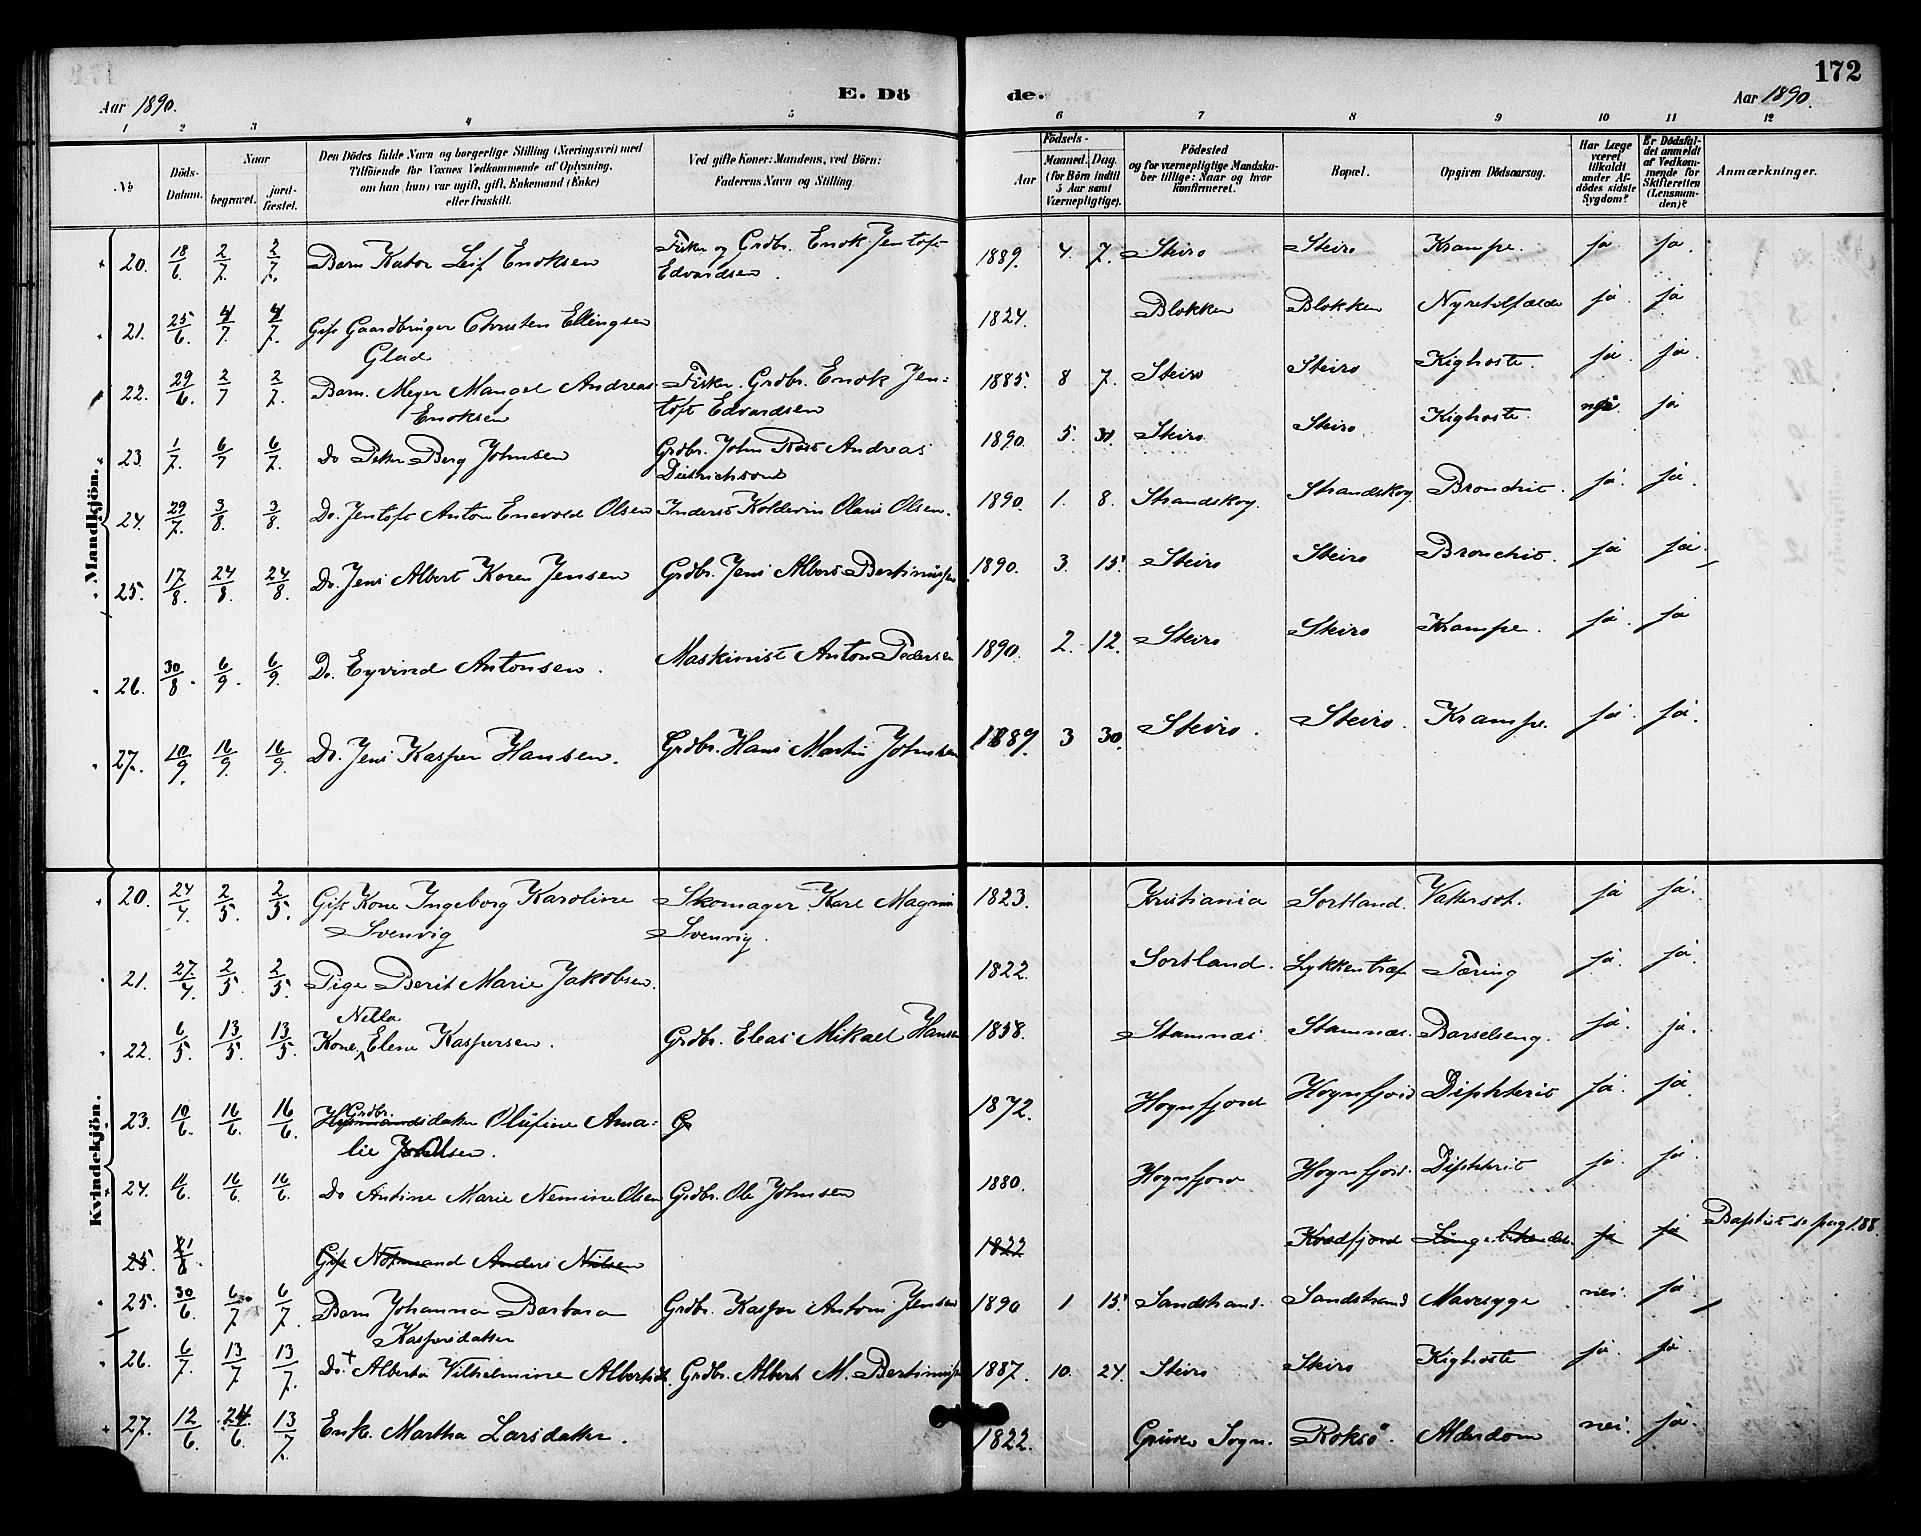 172
Aar 1890.
E. Dö
de.
Aar 1890.
1 2 3 4 5 6 7 8 9 10 11 12
No
Döds-Datum.
Naar
begravet.
jord-fæstet.
Den Dödes fulde Navn og borgerlige Stilling (Næringsvei) med
Tilföiende for Voxnes Vedkommende af Oplysning,
om han (hun) var ugift, gift, Enkemand (Enke)
eller fraskilt.
Ved gifte Koner: Mandens, ved Börn:
Faderens Navn og Stilling.
Födsels-
Aar
Maaned. Dag.
(for Börn indtil
5 Aar samt
Værnepligtige).
Födested
og for værnepligtige Mandska-
ber tillige: Naar og hvor
konfirmeret.
Bopæl.
Opgiven Dödsaarsag.
Har Læge
været
tilkaldt
under Af-
dödes sidste
Sygdom?
Er Dödsfal-
det anmeldt
af Vedkom-
mende for
Skifteretten
(Lensman-
den)?
Anmærkninger.
Mandkjön.
20. 18/6 2/7. 2/7. Barn Kator Leif Enoksen Fisker og Grdbr. Enok Jentoft 1889. 4. 7. Steiro Steiro Krampe. ja ja.
Edvardsen.
21. 25/6. 4/7. 4/7. Gift Gaardbruger Christen Ellingsen 1824. Blokken Blokken Nyretilfælde ja. ja
Glad
22. 29/6. 2/7 2/7. Barn. Meyer Mangel Andreas Fisker. Grdbr. Enok Jen- 1885. 8 7. Steiro Steiro Kighoste. ja. ja.
Enoksen toft Edvardsen
23. 1/7. 6/7 6/7. Do Peter Berg Johnsen Grdbr. John Andreas 1890. 5. 30. Steiro Steiro. Kighoste. ja
Dietrichsons
24. 29/7. 3/8 3/8. Do. Jentoft Anton Enevold Olsen Inderst Koldevin Olaus Olsen. 1890. 1. 8. Strandskog. Strandskog Bronchit. ja. ja.
25. 17/8. 24/8. 24/8. Do. Jens Albert Koren Jensen Grdbr. Jens Albert Bertinusen 1890. 3. 15. Steiro Steiro Bronchit. ja ja.
26. 30/8. 6/9. 6/9. Do. Eyvind Antonsen. Maskinist Anton Pedersen 1890. 2. 12. Steiro Steiro Krampe. ja. ja
27. 10/9. 16/9. 16/9. Do. Jens Kasper Hansen. Grdbr. Hans Martin Johnsen 1889. 3 30. Steiro. Steiro. Krampe. ja. ja.
Kvindekjön.
20. 24/4. 2/5. 2/5. Gift Kone Ingeborg Karoline Skomager Karl Magnus 1823. Kristiania Sortland. Vattersot. ja ja.
Svenvig Svenvig.
21. 27/4. 2/5. 2/5. Pige Berit Marie Jakobsen. 1822. Sortland. Lykkentræf Tæring ja. ja.
Nella
22. 6/5. 13/5. 13/5. Kone Elene Kaspersen. Grdbr. Eleas Mikael Hansen 1858. Stamnæs Stamnæs. Barselseng. ja. ja.
Grdbr.
23. 10/6. 16/6. 16/6. Husmandsdatter Olufine Ama- G 1872. Hognfjord Hognfjord Diphterit ja. ja.
lie Olsen.
24. 11/6. 16/6. 16/6. Do Andine Marie Nemine Olsen Grdbr. Ole Johnsen 1880. Hognfjord Hognfjord. Diphterit ja. ja.
25. 21/6. Gift Nordmand Anders Nielsen 1822 Kvædfjord Lungebetændels. ja ja Baptist se pag 188.
25. 30/6. 6/7. 6/7. Barn Johanna Barbara Grdbr. Kasper Antons Jensen 1890 1 15. Sandstrand. Sandstrand Mavesyge nei. ja.
Kaspersdatter
26. 6/7. 13/7 13/7. Do. Alberta Vilhelmine Albertsd. Grdbr. Albert M. Bertinusen 1887. 10. 24. Steiro Steiro Kighoste ja. ja.
27. 12/6. 24/6. 13/7. Enk. Martha Larsdatter. 1822. Sogn. Roksö Alderdom nei. ja.